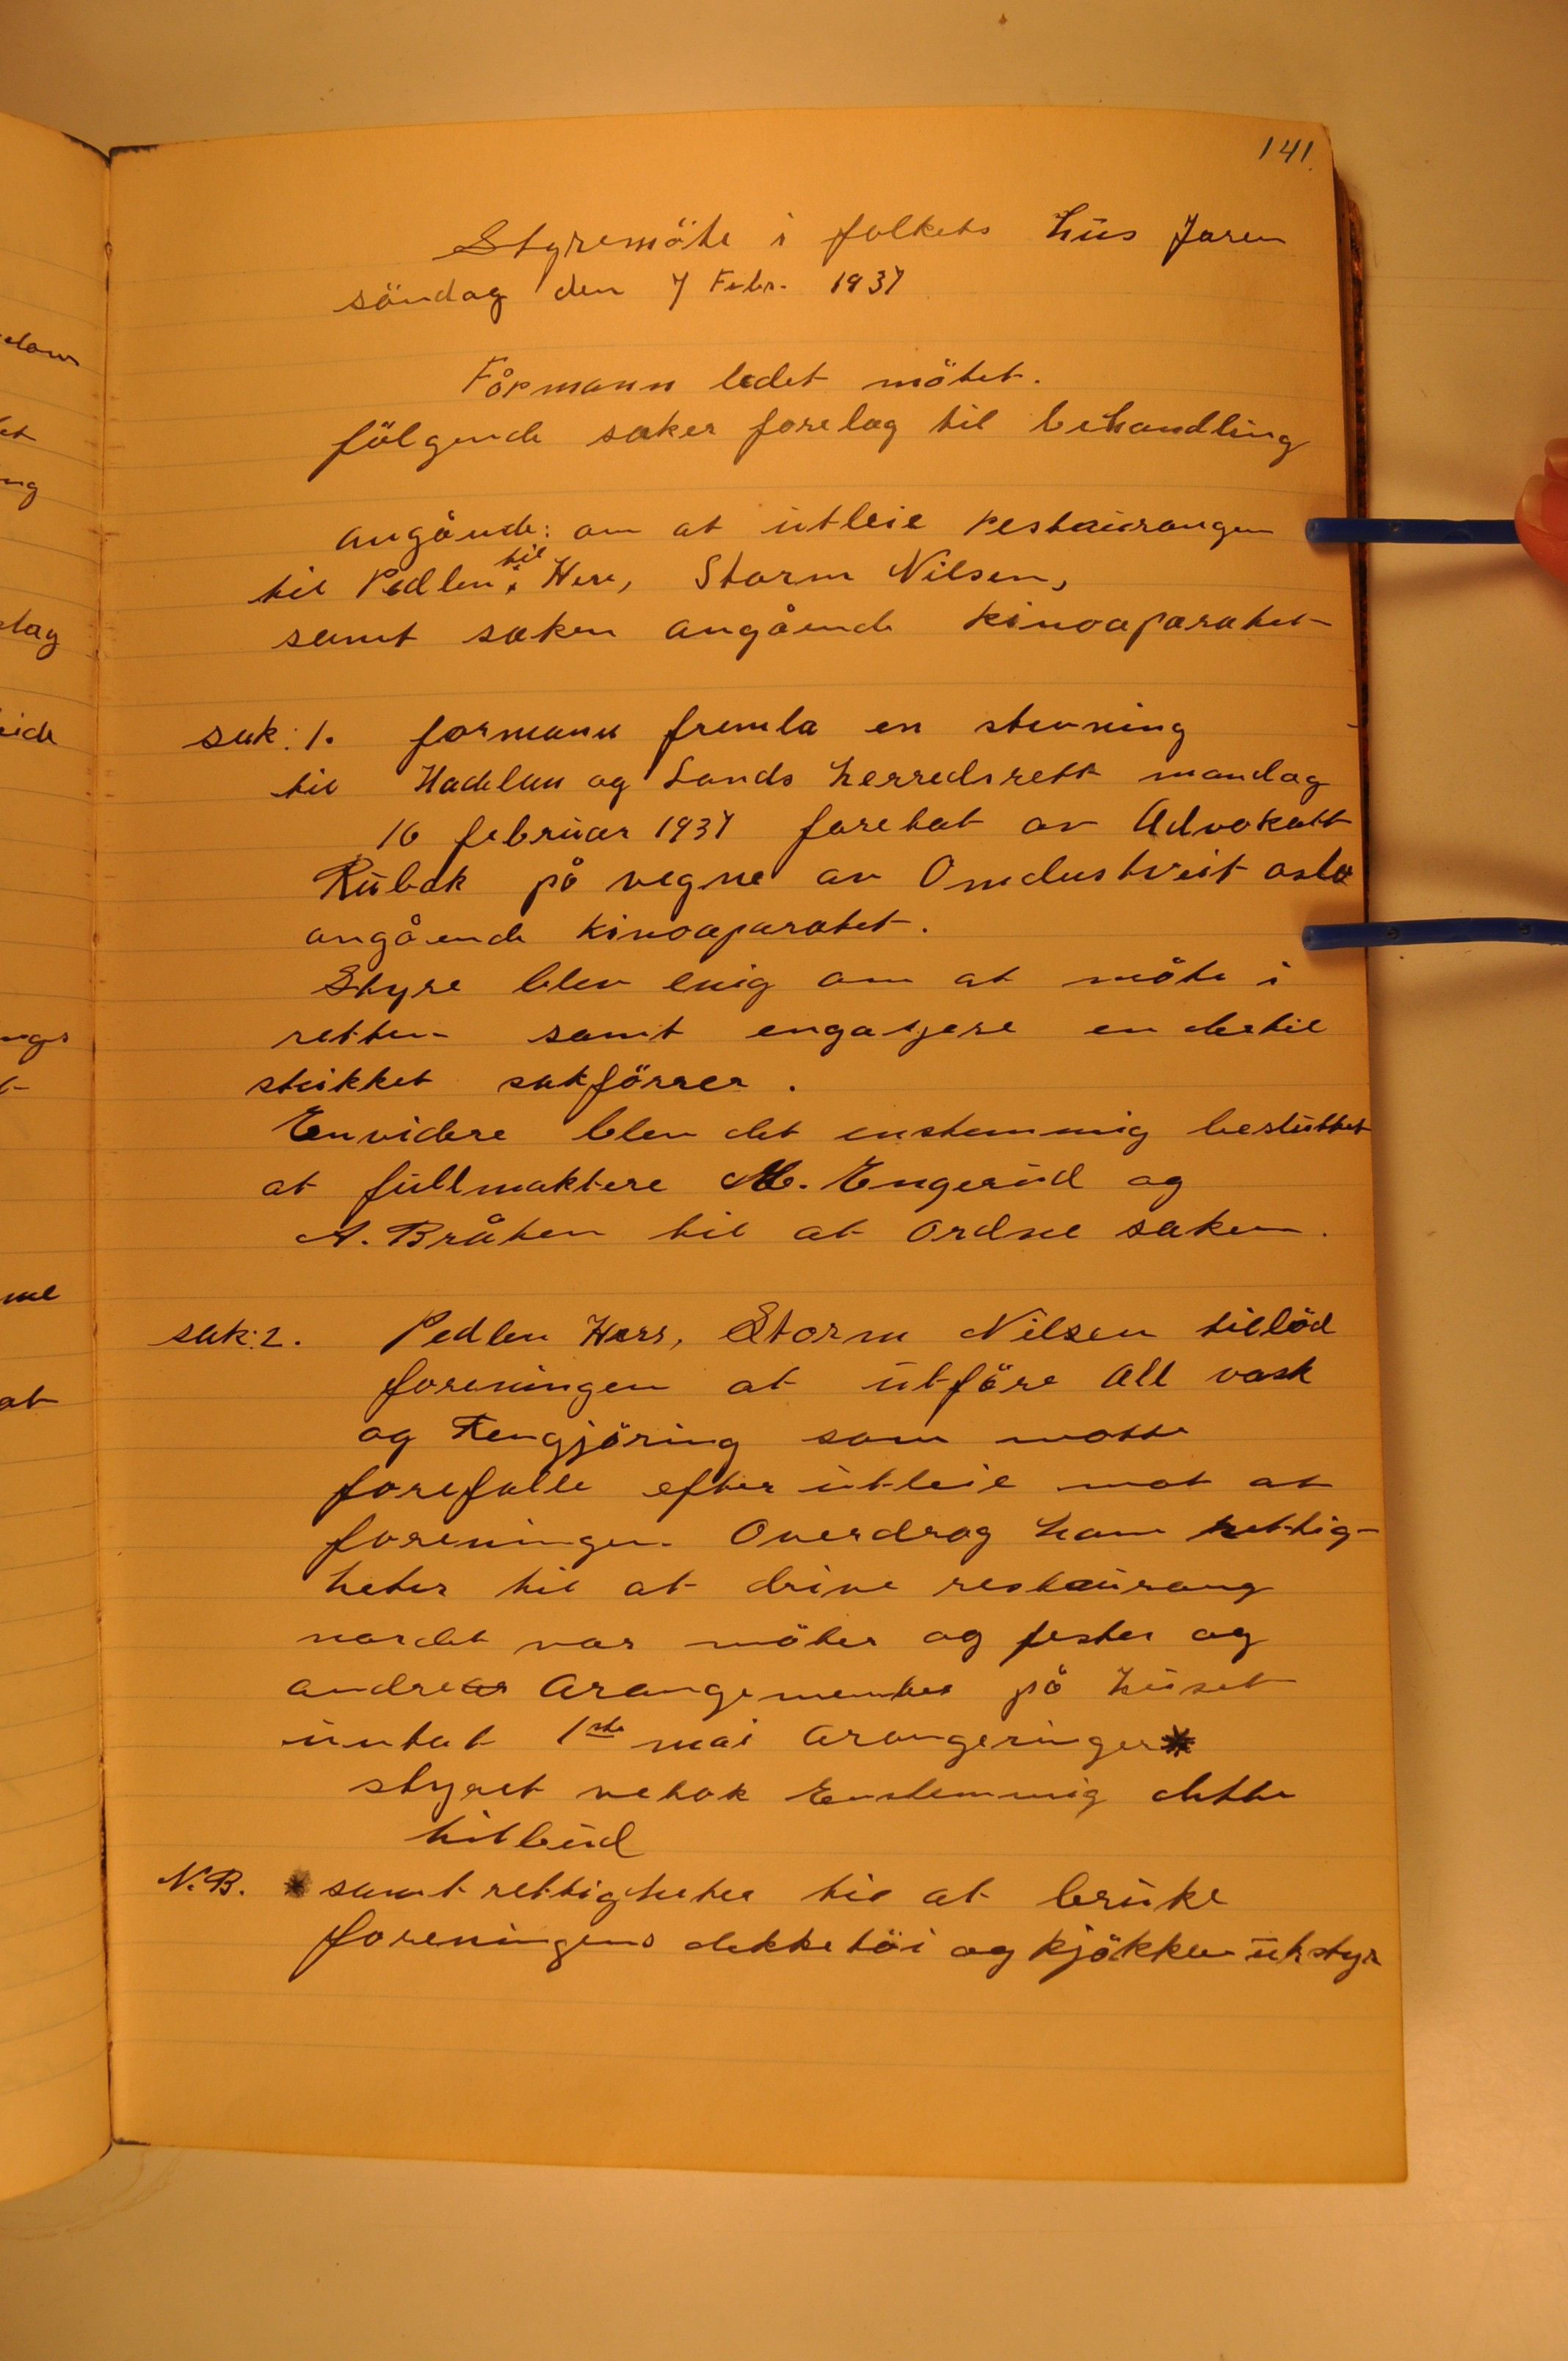 141.
Styremöte i folkets hus Jaren
söndag den 7 Febr. 1937
Förmann ledet mötet.
fölgende saker forelag til behandling
angående: om at utleie restaurangen
til Pedlen. til Herr, Storm Nilsen,
samt saken angående kinoaparatet
sak: 1. formann fremla en stevning
til Hadelan og Lands herredsrett mandag
16 februar 1937 foretat av Advokatt
Rubek på vegne av Omdustveit oslo
angående kinoaparatet.
Styre blev enig om at möte i
retten samt engasjere en dertil
skikket sakförrer.
Envidere blev det enstemmig besluttet
at fullmaktere M. Engerud og
A. Bråten til at Ordne saken.
sak: 2. Pedlen Herr, Storm Nilsen tilöd
foreningen at utföre all vask
og Rengjöring som motte
forefalle efter utleie mot at
foreningen. Overdrog ham rettig-
heter til at drive restaurang
nordet var möter og fester og
andre Arangementer på huset
untat 1ste mai arangeringer*
styret vetok Enstemmig dette
tilbud
N.B. * samt rettigheter til at bruke
foreningens dekketöi og kjökken utstyr
elow
et
ng
dag
eide
ngs
t
me
at